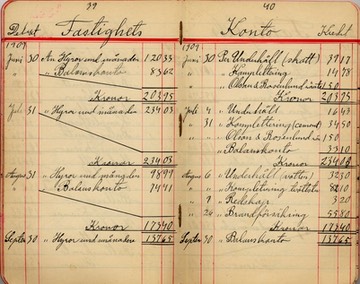 39
Debet Fastighets
1909
Juni 30 An Hyror und. månaden 120 33
" " Balanskonto 83 62
Kronor 203 95
Juli 31 " Hyror und månaden 234 03
Kronor 234 03
Augusti 31 " Hyror und mångden 98 99
" " Balanskonto 74 41
Kronor 173 40
Septbr 30 " Hyror und månaden 137 65
40
Konto Kredit
1909
Juni 30 Per Underhåll (skatt) 39 17
" " Komplettering 14 78
" " Olson & Rosenlund
Kronor 203 95
Juli 4 " Underhåll 16 43
" 31 " Komplettering (cement) 34 50
" " Olson & Rosenlund
" " Balanskonto 33 10
Kronor 234 03
Augusti 6 " Underhåll (vatten) 32 50
" " Komplettering 82 10
" 9 " Redskap 3 20
" 26 " Brandförsäkring 55 80
Kronor 173 40
Septbr 30 " Balanskonto 137 65